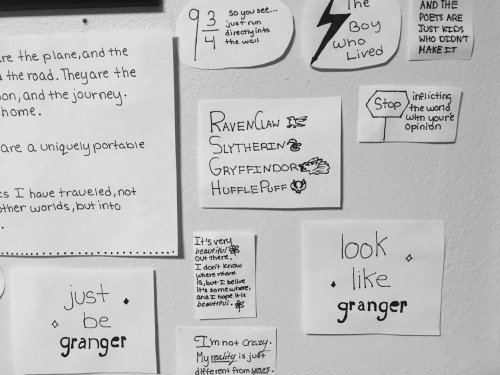 are the plane, and the
the road. They are the
on, and the journey.
home.
are a uniquely portable
s I have traveled, not
other worlds, but into
9 3/4
so you see...
just run
directly into
the wall
The
Boy
who
Lived
AND THE
POETS ARE
JUST KIDS
WHO DIDN'T
MAKE IT
RAVENCLAW
SLYTHERIN
GRYFFINDOR
HUFFLEPUFF
Stop
inflicting
the world
with your
opinion
It's very
beautiful
out there.
I don't know
where there
is, but I belive
it's somewhere,
and I hope it is
beautiful.
look
like
granger
just
be
granger
I'm not crazy.
My reality is just
different from yours.